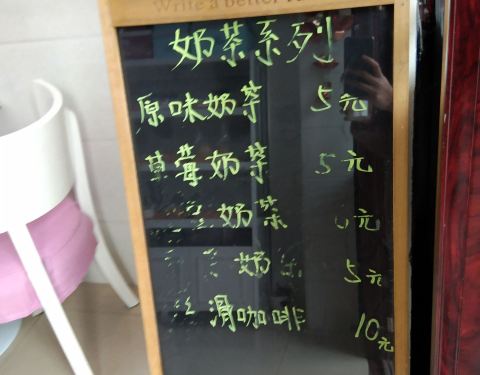 Write a better
奶茶系列
原味奶茶 5元
草莓奶茶 5元
奶茶 元
奶 5元
丝滑咖啡 10元